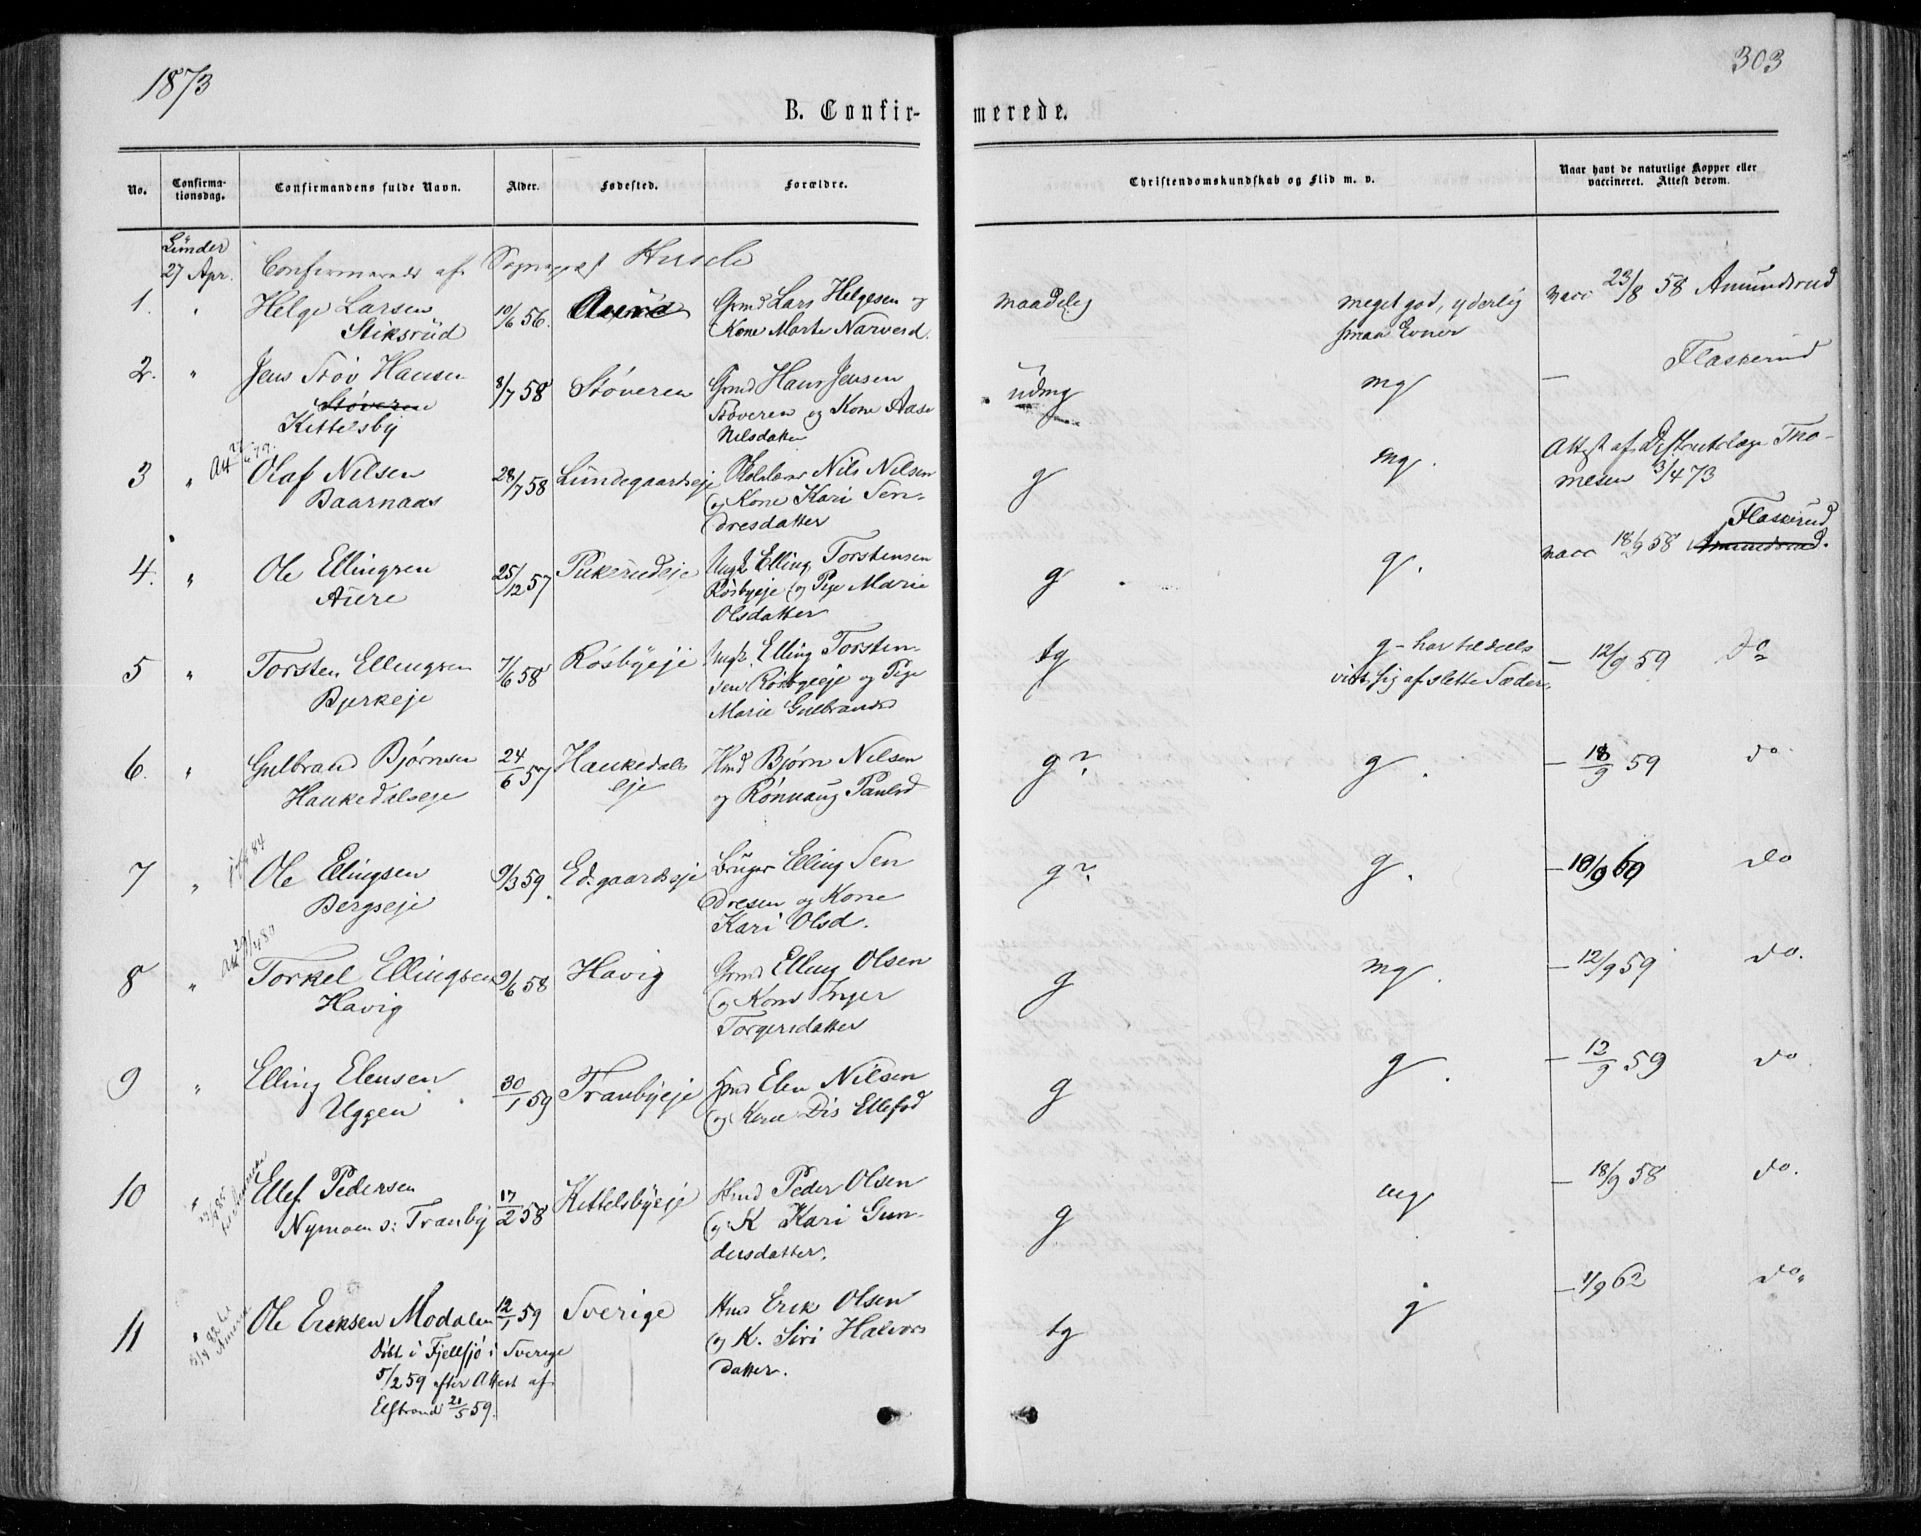 1873
303
B. Confir-
merede.
No.
Confirma-
tionsdag.
Confirmandens fulde Navn.
Alder.
Fødested.
Forældre.
Christendomskundskab og Flid m. v.
Naar havt de naturlige Kopper eller
vaccineret. Attest derom.
Lunder
27 Apr. Confirmerede af Sognepræst
1. " Helge Larsen 10/6 56. Gmd Lars Helgesen og maadelig meget god, yderlig vacc 23/8 58 Amundsrud
Stiksrud Kone Marte Narvesd. smaa Evner
2. " Jens Støv Hansen 8/7 58 Støveren Gmd Hans Jensen udmg mg — Flaskerud
Støveren Støveren og Kone Aase
Kittelsby Nilsdatter
3 " Olaf Nilsen 28/7 58 Lundegaardseje Nils Nilsen g mg. Attest af Distriktslæge Tho-
Baarnaas og Kone Kari Sen- mesen 3/4 73
dresdatter
4. " Ole Ellingsen 25/12 57 Pukerudeje Ungk Elling Torstensen g g. vacc 18/9 58 Flaskerud
Aure Rosbyeje og Pige Marie Amundsrud.
Olsdatter
5 " Torsten Ellingsen 7/6 58 Rosbyeje Ungk. Elling Torsten- tg g - har tildeels — 12/9 59 do
Bjerkeje sen Rosbyeje og Pige vist sig af slette Sæder.
Marie Gulbrandsd
6. " Gulbrand Bjørnsen 24/6 57 Haukedals Hmd Bjørn Nilsen g? g. — 18/9 59 do
Haukedalseje eje og Rønnaug Paulsd
7 " Ole Ellingsen 9/3 59. Ed.gaardseje Bruger Elling Sen g? g. — 10/9 60 do
Bergseje dresen og Kone
Kari Olsd.
8 " Torkel Ellingsen 9/6 58 Havig Gmd Elling Olsen g mg. — 12/9 59 do.
Havig og Kone Inger
Torgersdatter
9 " Elling Ebensen 30/1 59 Tranbyeje Hmd Eben Nilsen g g. — 12/9 59 do
Uggen og Kone Dis Ellefsd
10 " Ellef Pedersen 17/2 58 Kittelsbyeje Hmd Peder Olsen g mg — 18/9 58 do.
Nymoen s: Tranby og K Kari Gun-
dersdatter.
11 " Ole Eriksen Modalen 12/1 59 Sverige Hmd Erik Olsen tg g — 1/9 62 do.
Døbt i Fjellsjø i Sverige og K. Siri Halvors
5/2 59 efter Attest af datter.
21/5 59.